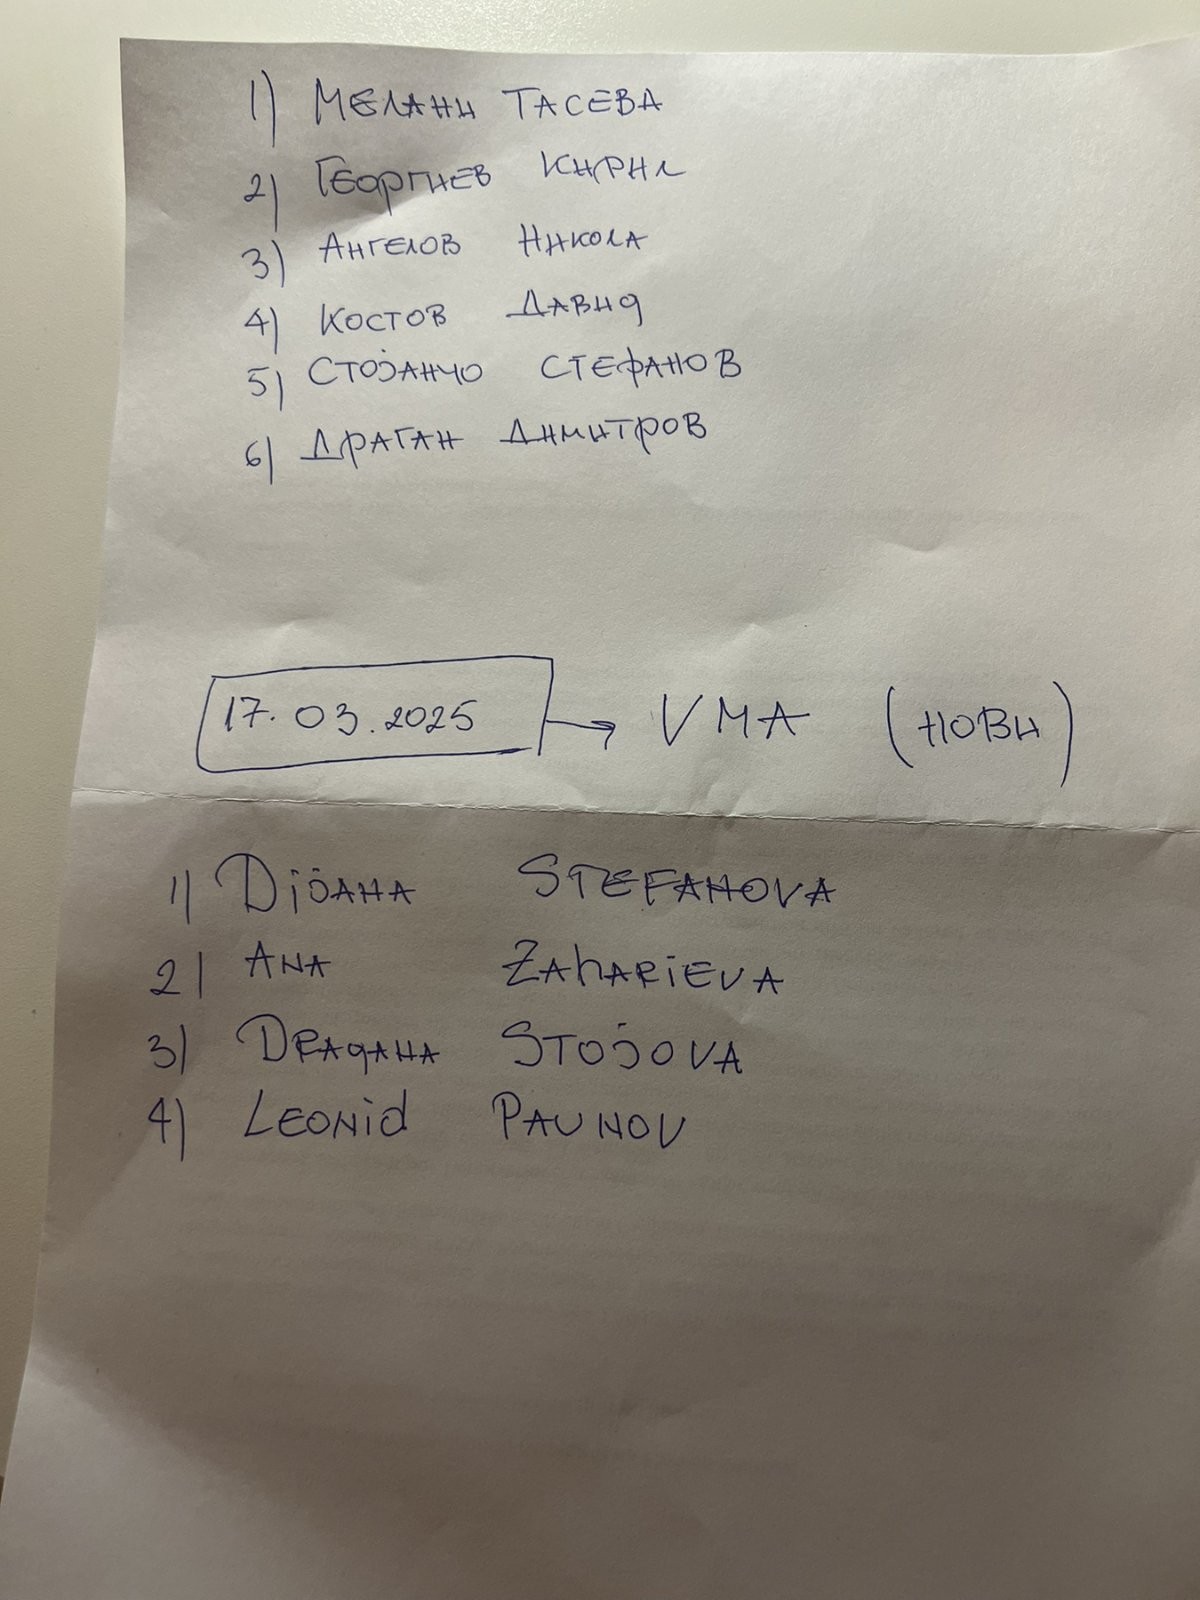 1) МЕЛАНИ ТАСЕВА
2) ГЕОРГИЕВ КИРИЛ
3) АНГЕЛОВ НИКОЛА
4) КОСТОВ ДАВИД
5) СТОЈАНЧО СТЕФАНОВ
6) ДРАГАН ДИМИТРОВ
17.03.2025 → VMA (НОВИ)
1) DijANA STEFANOVA
2) ANA ZAhARiEVA
3) DRAgANA STOjOVA
4) LEONid PAUNOV